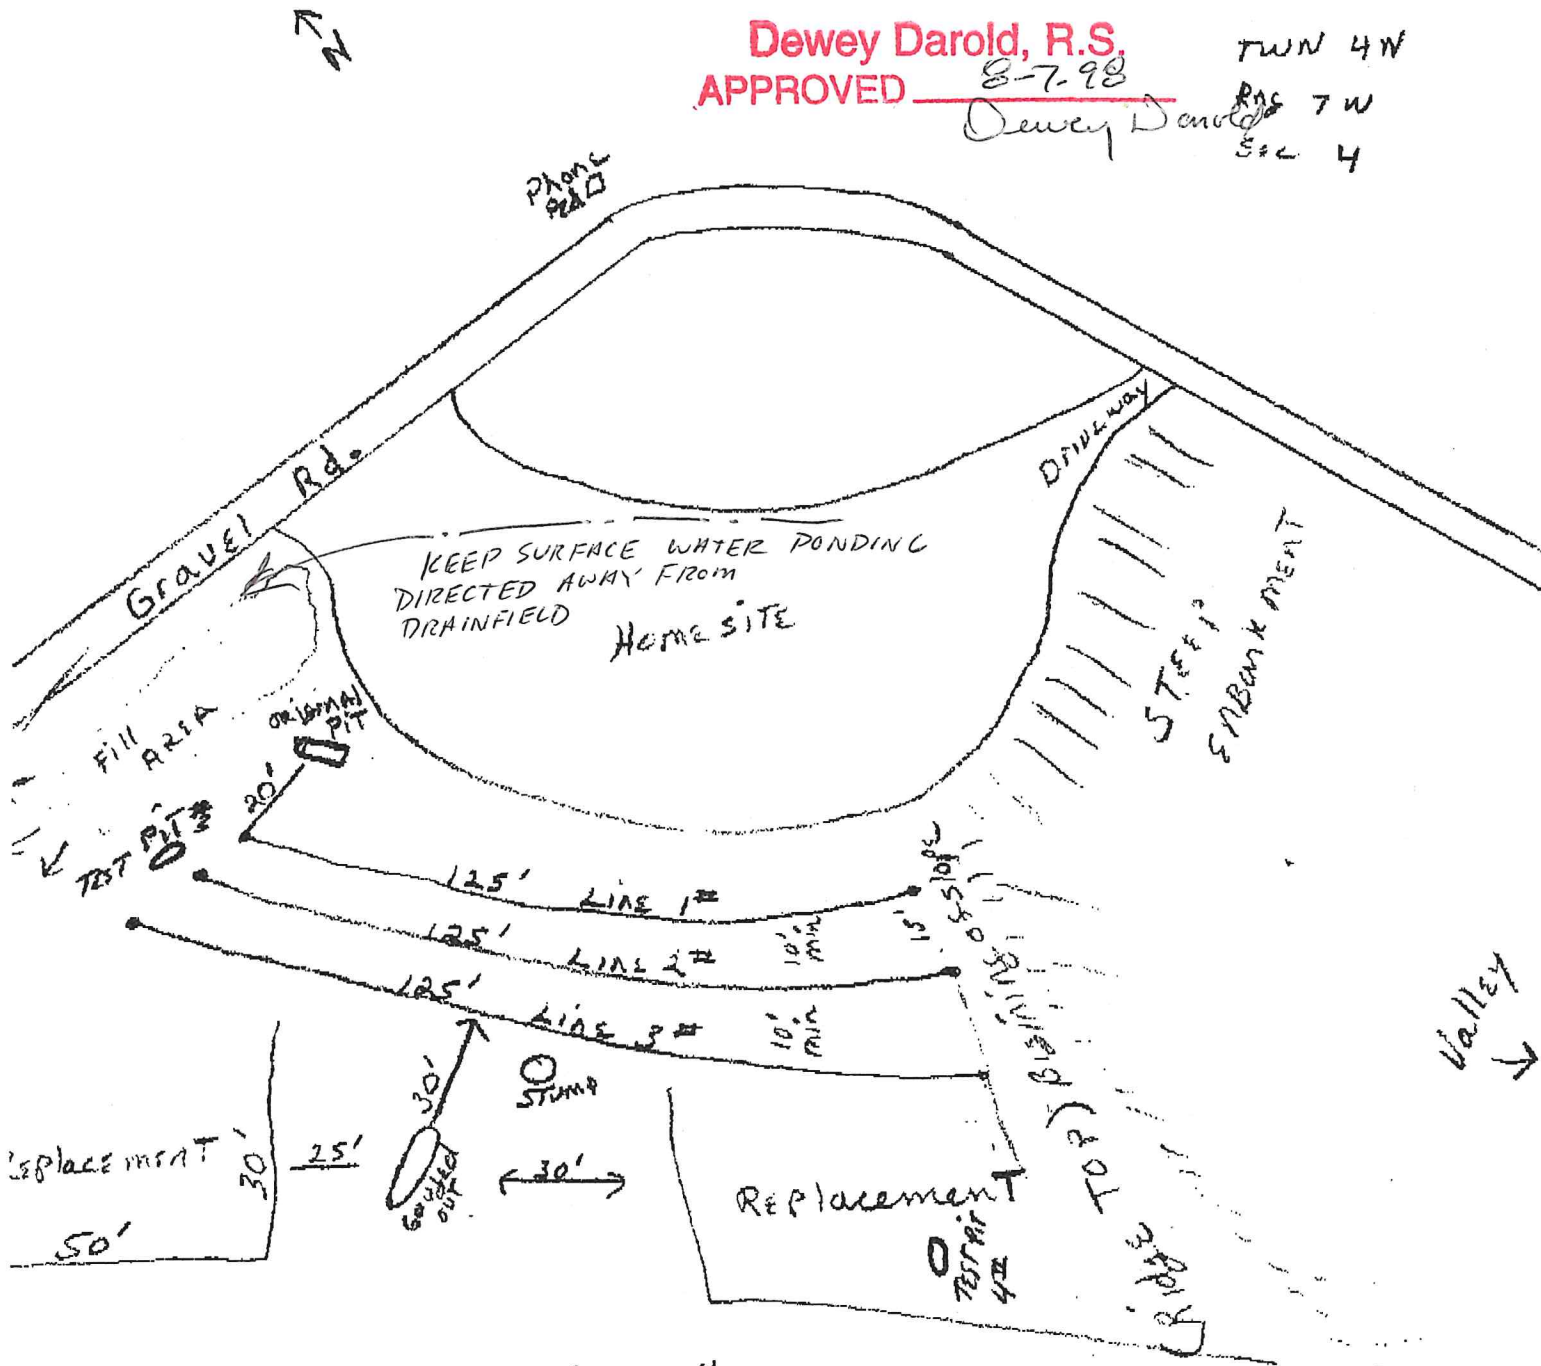 N
Dewey Darold, R.S.
APPROVED 8-7-98
Dewey Darold
TWN 4 N
RNG 7 W
SEC 4
Phone
PED
Gravel Rd.
Driveway
KEEP SURFACE WATER PONDING
DIRECTED AWAY FROM
DRAINFIELD
Home SITE
STEEP
EMBANKMENT
Fill
AREA
ORIGINAL
PIT
20'
TEST PIT #3
125' Line 1#
125' Line 2#
125' Line 3#
10'
min
10'
min
15'
OF SLOPE
(Ridge TOP)
Valley
30'
STUMP
Replacement
30'
25'
50'
Gouged
out
30'
Replacement
TEST PIT
4#